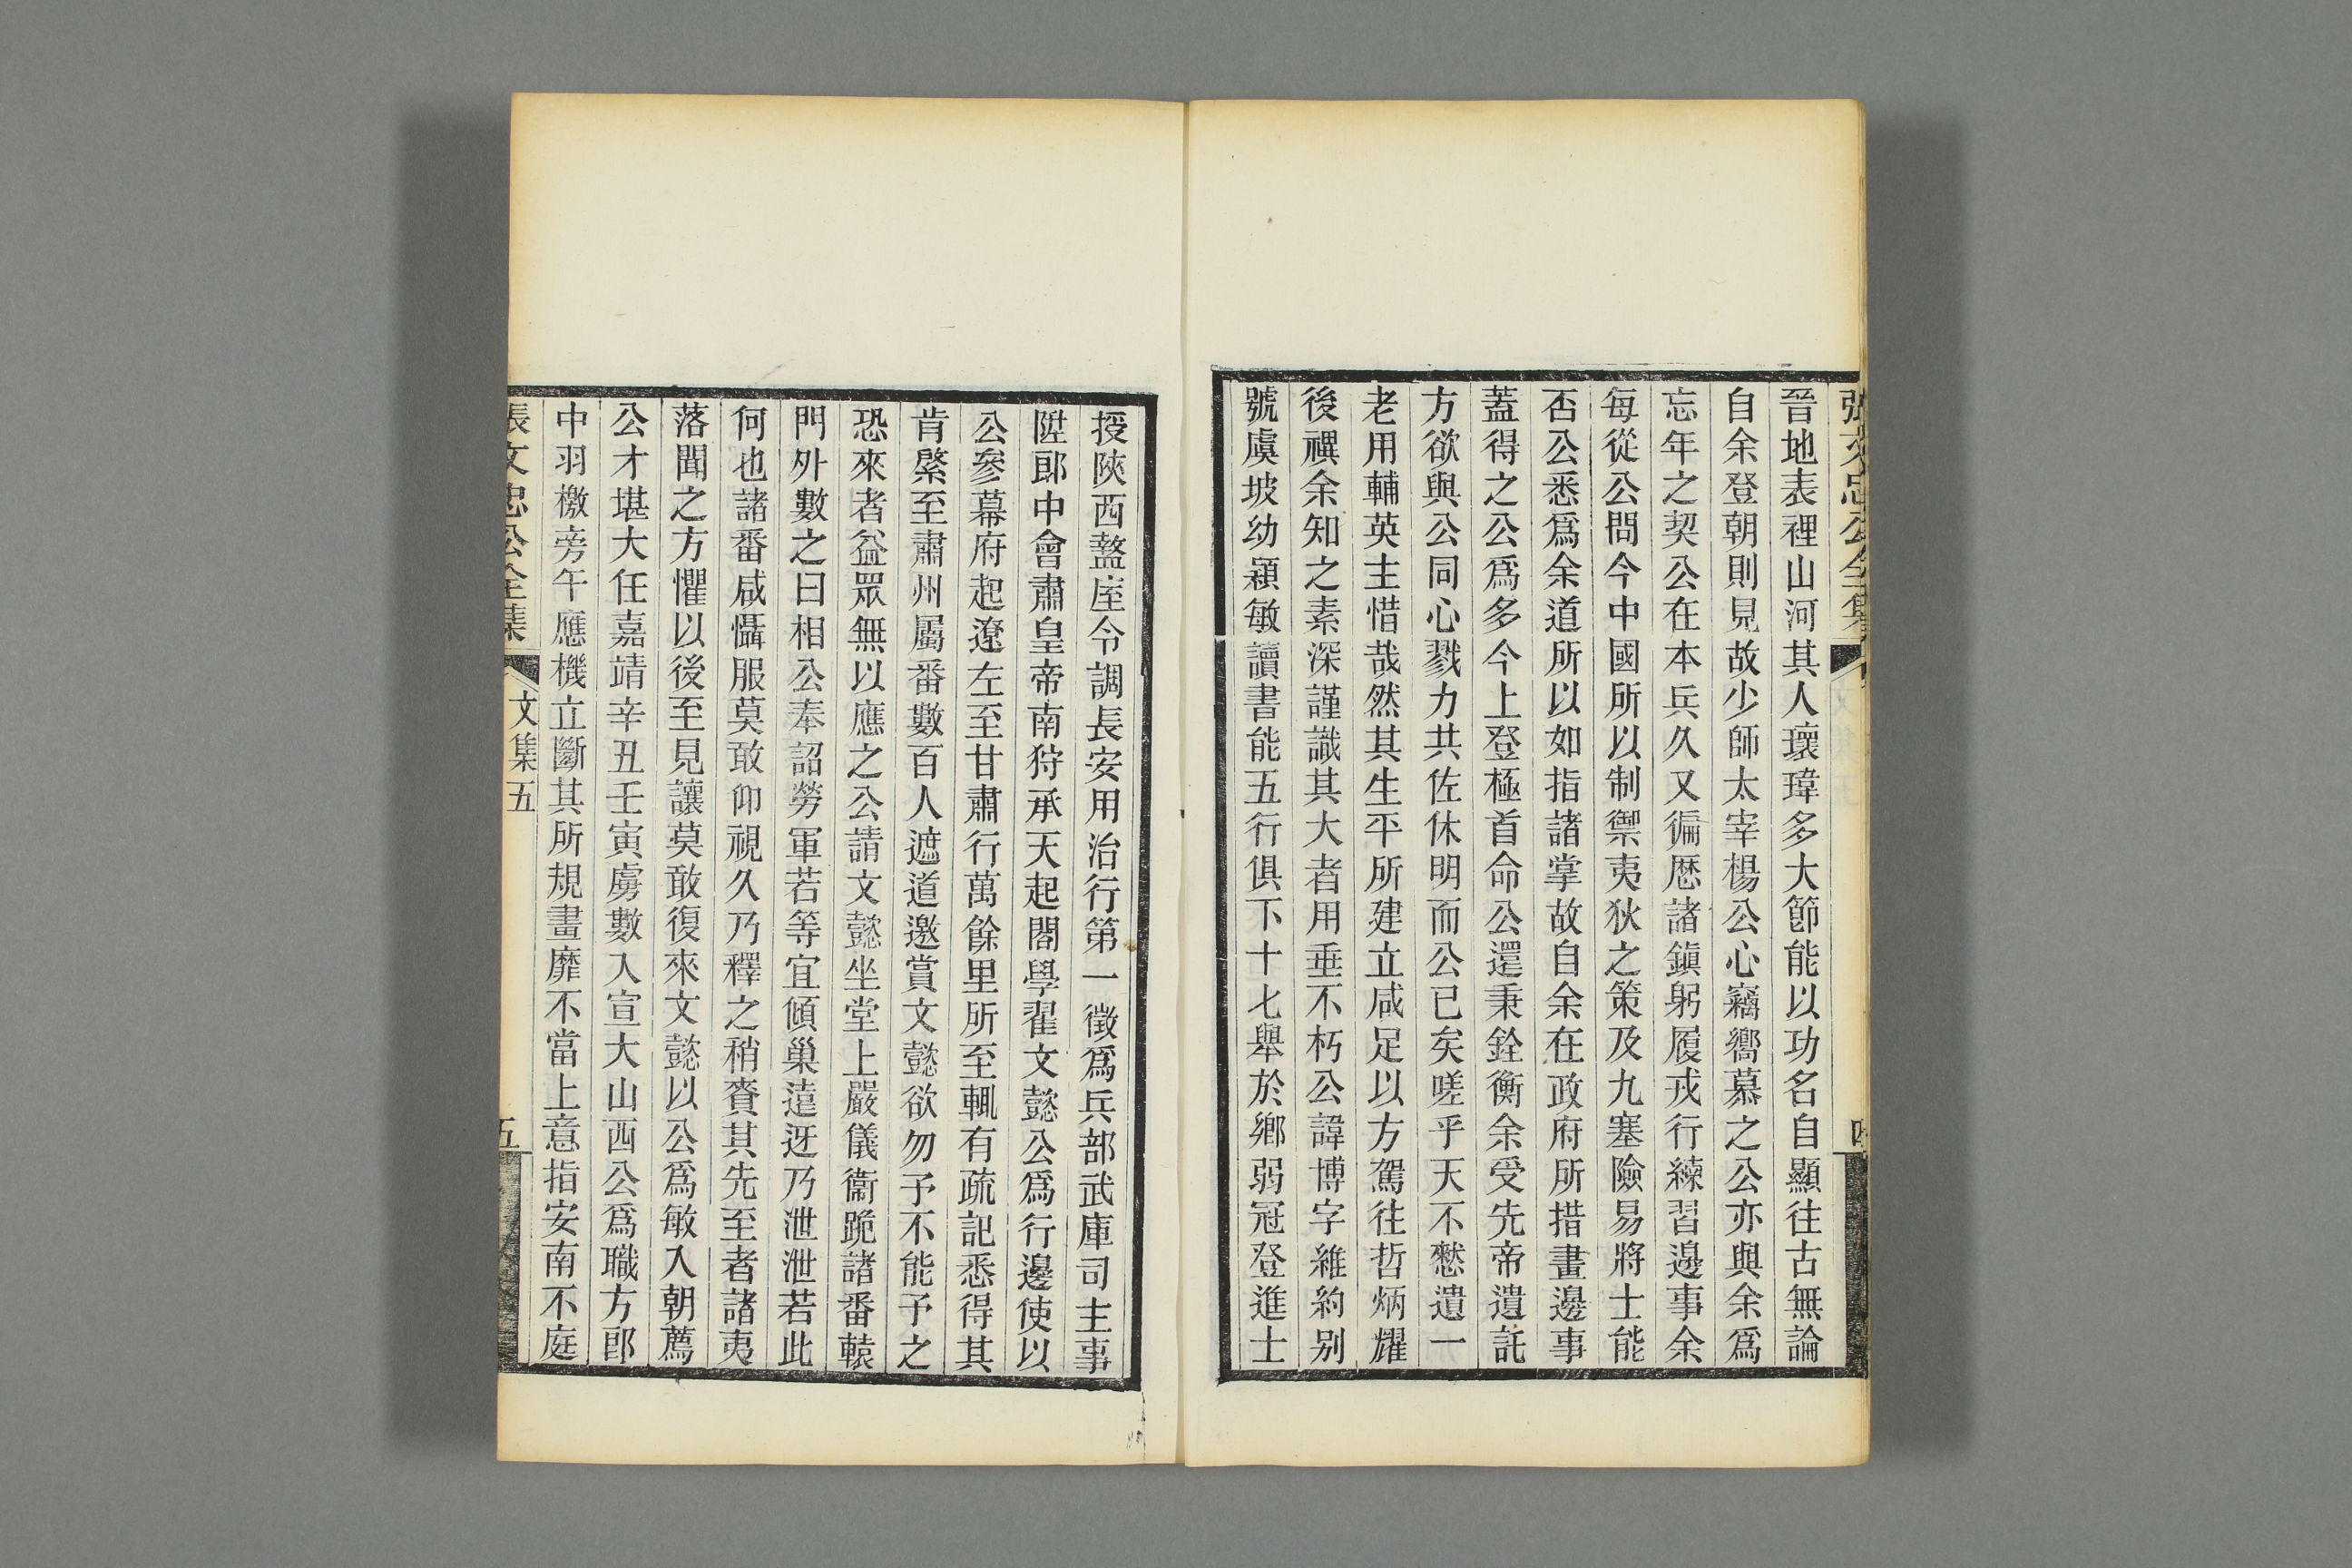 張文忠公全集
晉地表裡山河其人瓌瑋多大節能以功名自顯往古無論
自余登朝則見故少師太宰楊公心竊嚮慕之公亦與余爲
忘年之契公在本兵久又徧歷諸鎭躬履戎行練習邊事余
每從公問今中國所以制禦夷狄之策及九塞險易將士能
否公悉爲余道所以如指諸掌故自余在政府所措畫邊事
蓋得之公爲多今上登極首命公還秉銓衡余受先帝遺託
方欲與公同心戮力共佐休明而公已矣嗟乎天不憖遺一
老用輔英主惜哉然其生平所建立咸足以方駕往哲炳耀
後禩余知之素深謹識其大者用垂不朽公諱博字維約别
號虞坡幼穎敏讀書能五行俱下十七舉於鄉弱冠登進士
授陝西盩厔令調長安用治行第一徵爲兵部武庫司主事
陞郎中會肅皇帝南狩承天起閣學翟文懿公爲行邊使以
公參幕府起遼左至甘肅行萬餘里所至輒有疏記悉得其
肯綮至肅州屬番數百人遮道邀賞文懿欲勿予不能予之
恐來者益眾無以應之公請文懿坐堂上嚴儀衞跪諸番轅
門外數之曰相公奉詔勞軍若等宜傾巢遠迓乃泄泄若此
何也諸番咸懾服莫敢仰視久乃釋之稍賚其先至者諸夷
落聞之方懼以後至見讓莫敢復來文懿以公爲敏入朝薦
公才堪大任嘉靖辛丑壬寅虜數入宣大山西公爲職方郎
中羽檄旁午應機立斷其所規畫靡不當上意指安南不庭
張文忠公全集 文集五 五